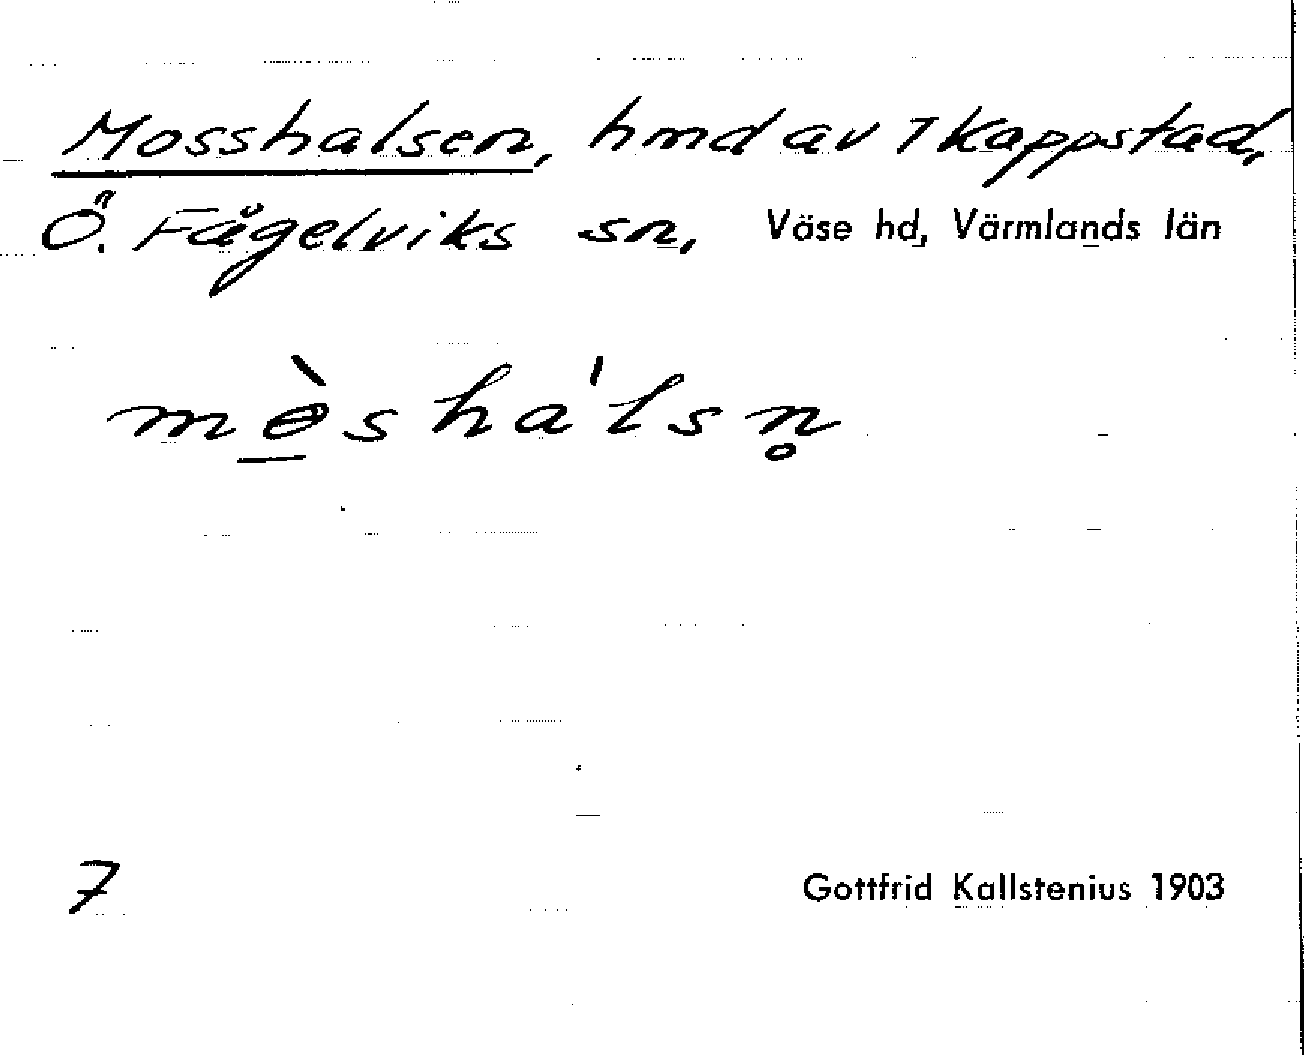 Mosshalsen, hmd av 7 Kappstad,
Ö. Fågelviks sn, Väse hd, Värmlands län
mɵ̠̀sha'lsn̥
7 Gottfrid Kallstenius 1903